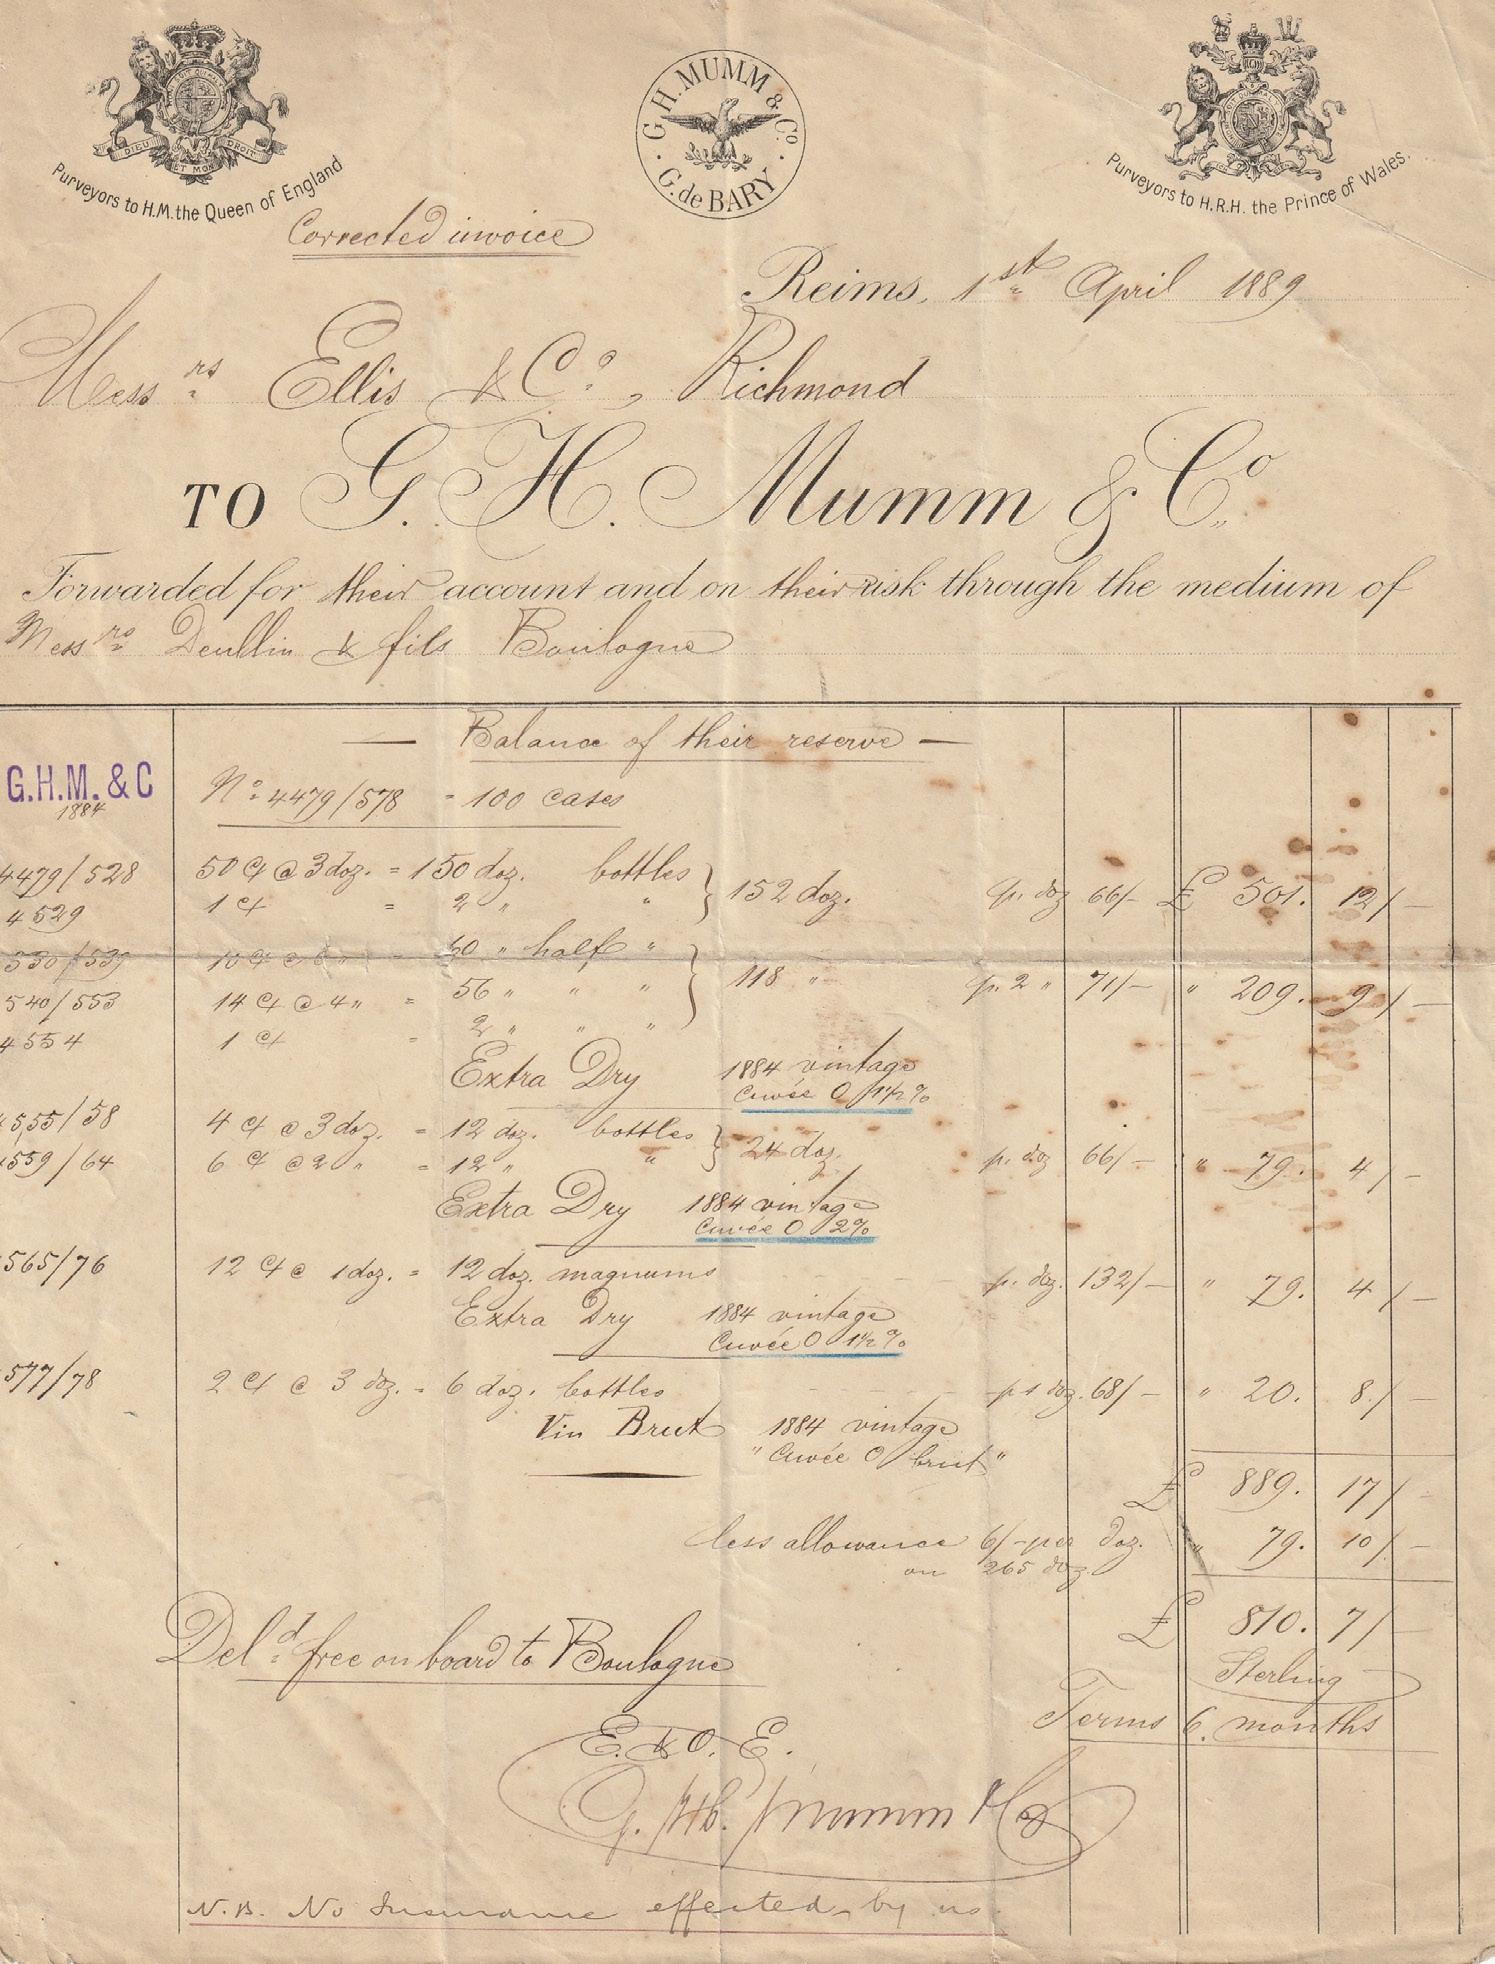 DIEU ET MON DROIT
Purveyors to H.M. the Queen of England
G. H. MUMM & Co.
G. de BARY
Purveyors to H.R.H. the Prince of Wales.
Corrected invoice
Reims, 1st April 1889
Messrs Ellis & Co, Richmond
TO G. H. Mumm & Co
Forwarded for their account and on their risk through the medium of
Messrs Deullin & fils Boulogne
— Balance of their reserve —
G.H.M. & C
1884
No 4479/578 = 100 cases
4479/528 50 C/ @ 3 doz. = 150 doz. bottles } 152 doz. p. doz 66/- £ 501. 12/-
4529 1 C/ = 2 " "
530/539 10 C/ @ 6 " = 60 " half " } 118 " p. 2 " 71/- " 209. 9/-
540/553 14 C/ @ 4 " = 56 " " "
4554 1 C/ = 2 " " "
Extra Dry 1884 vintage
Cuvée O 1½%
4555/58 4 C/ @ 3 doz. = 12 doz. bottles } 24 doz. p. doz 66/- " 79. 4/-
559/64 6 C/ @ 2 " = 12 " "
Extra Dry 1884 vintage
Cuvée O 2%
565/76 12 C/ @ 1 doz. = 12 doz. magnums p. doz. 132/- " 79. 4/-
Extra Dry 1884 vintage
Cuvée O 1½%
577/78 2 C/ @ 3 doz. = 6 doz. bottles p 1 doz. 68/- " 20. 8/-
Vin Brut 1884 vintage
"Cuvée O brut"
£ 889. 17/-
less allowance 6/- per doz. " 79. 10/-
on 265 doz.
£ 810. 7/-
Sterling
Deld free on board to Boulogne
Terms 6 months
E. & O. E.
G. H. Mumm & Co
N.B. No Insurance effected by us.